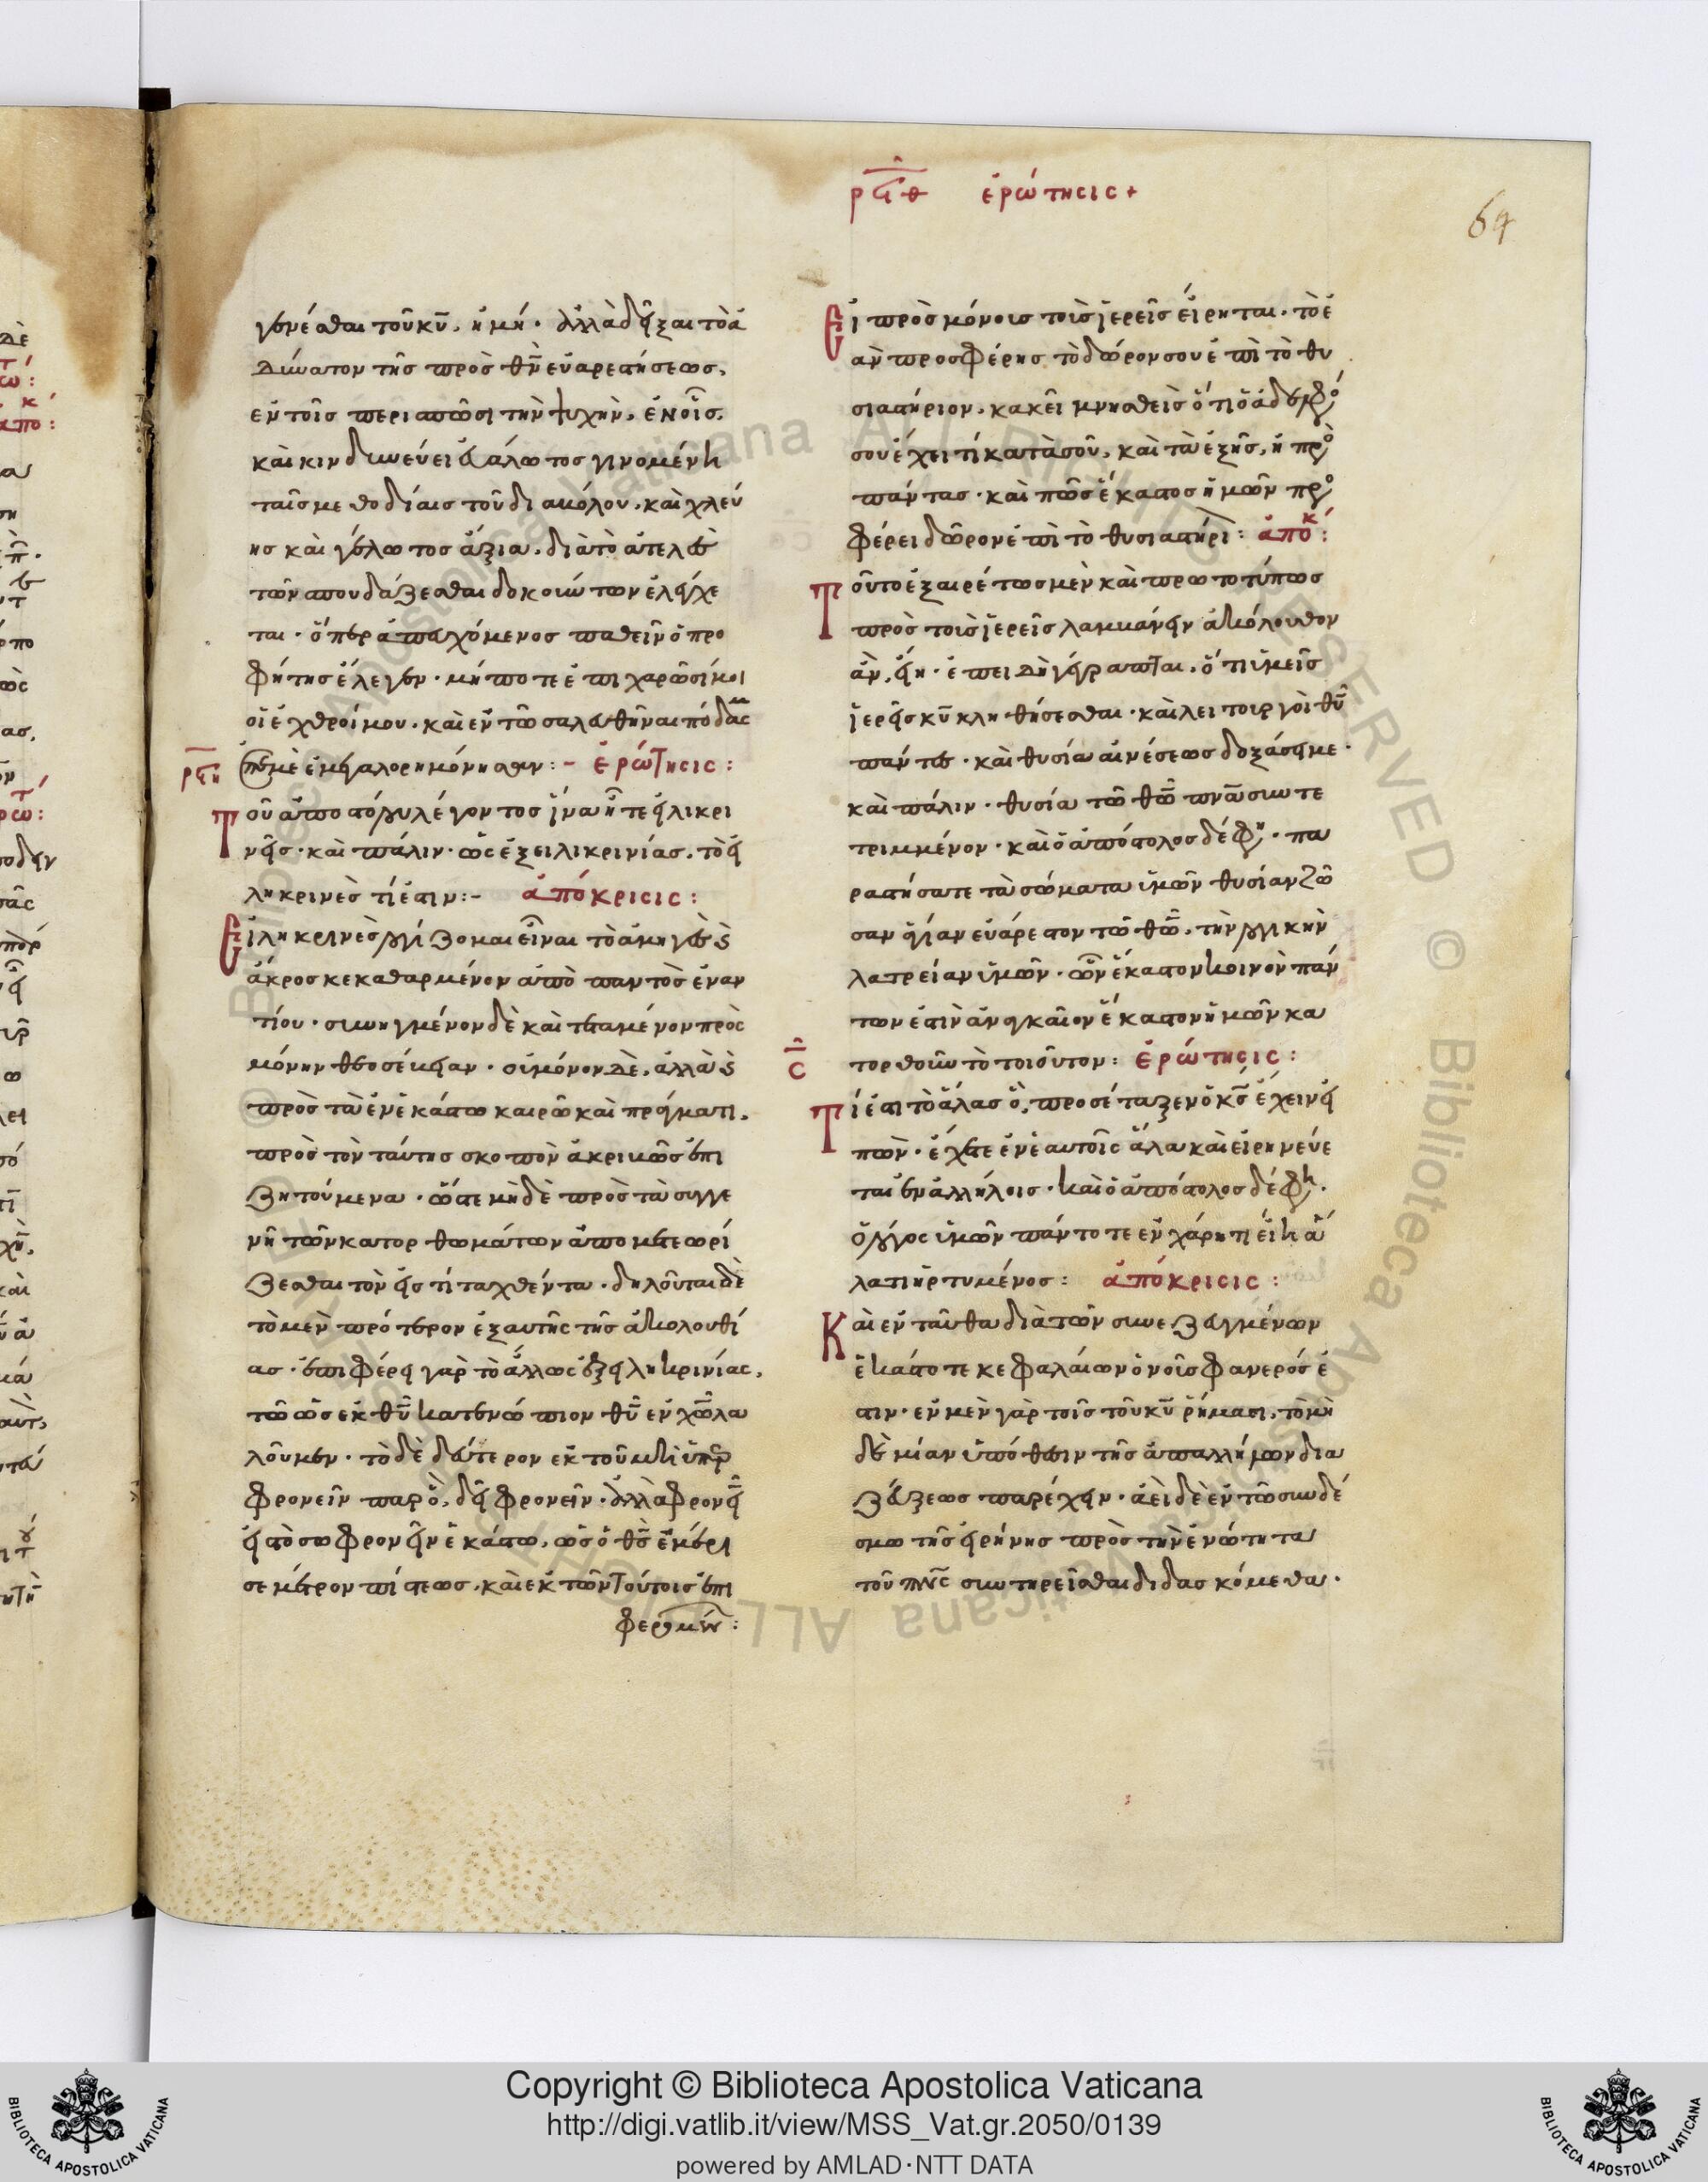 γενέσθαι τοῦ κ̅υ̅, ἡμῖ· ἀλλὰ δεῖξαι τὸ ἀ
δύνατον τῆς πρὸς θ̅ν̅ εὐαρεστήσεως,
ἐν τοῖς περισπῶσι τὴν ψυχὴν, ἐν οἷς,
καὶ κινδυνεύει εὐάλωτος γινομένη
ταῖς μεθοδίαις τοῦ διαβόλου, καὶ χλεύ
ης καὶ γέλωτος ἀξία, διὰ τὸ ἀτελὲς
τῶν σπουδάζεσθαι δοκούντων ἐλέγχε
ται· ὅπερ ἀπευχόμενος παθεῖν ὁ προ
φήτης ἔλεγεν· μήποτε ἐπιχαρῶσί μοι
οἱ ἐχθροί μου, καὶ ἐν τῶ σαλευθῆναι πόδας
ἐπ' ἐμὲ ἐμεγαλορημόνησαν:- ἐρώτησις:
ρϟη
Τοῦ ἀποστόλου λέγοντος ἵνα ἦτε εἰλικρι
νεῖς· καὶ πάλιν· ὡς ἐξ εἰλικρινίας, τὸ εἰ
ληκρινὲς τί ἐστιν:- ἀπόκρισις:
Εἰληκρινὲς λογίζομαι εἶναι τὸ ἀμηγὲς καὶ
ἄκρος κεκαθαρμένον ἀπὸ παντὸς ἐναν
τίου· συνηγμένον δὲ καὶ τεταμένον πρὸς
μόνην θεοσέβειαν· οὐ μόνον δὲ, ἀλλὰ καὶ
πρὸς τὰ ἐν ἑκάστω καιρῶ καὶ πράγματι,
πρὸς τὸν ταύτης σκοπὸν ἀκριβῶς ἐπι
ζητούμενα· ὥστε μὴ δὲ πρὸς τὰ συγγε
νῆ τῶν κατορθωμάτων ἀπομετεωρί
ζεσθαι τὸν εἴς τί ταχθέντα· δηλοῦται δὲ
τὸ μὲν πρότερον ἐξ αυτῆς τῆς ἀκολουθί
ας· ἐπιφέρει γὰρ τὸ ἄλλως ἐξ εἰληκρινίας,
τῶ ὡς ἐκ θ̅υ̅ κατενώπιον θ̅υ̅ ἐν χ̅ω̅ λα
λοῦμεν· τὸ δὲ δεύτερον ἐκ τοῦ μὴ ὑπὲρ
φρονεῖν παρ' ὃ, δεῖ φρονεῖν· ἀλλὰ φρονεῖ
εἰς τὸ σωφρονεῖν ἑκάστω, ὡς ὁ θ̅ς̅ ἐμέρι
σε μέτρον πίστεως, καὶ ἐκ τῶν τούτοις ἐπι
φερομένων:
ρϟθ ἐρώτησις +
64
Εἰ πρὸς μόνοις τοῖς ἱερεῖς εἴρηται, τὸ ἐ
ὰν προσφέρης τὸ δῶρον σου ἐπὶ τὸ θυ
σιαστήριον, κακεῖ μνησθεῖς ὅτι ὁ ἀδελφός
σου ἔχει τί κατὰ σοῦ, καὶ τὰ ἑξῆς, ἢ πρὸς
πάντας· καὶ πῶς ἕκαστος ἡμῶν προσ
φέρει δῶρον ἐπὶ τὸ θυσιαστήρι: ἀπόκ:
Τοῦτο ἐξαιρέτως μὲν καὶ πρωτοτύπως
πρὸς τοὶς ἱερεῖς λαμβάνειν ἀκόλουθον
ἂν, εἴη· ἐπειδὴ γέγραπται, ὅτι ὑμεῖς
ἱερεῖς κ̅υ̅ κληθήσεσθαι· καὶ λειτουργοὶ θ̅υ̅
πάντες· καὶ θυσία αἰνέσεως δοξάσει με·
καὶ πάλιν· θυσία τῶ θ̅ω̅ π̅ν̅α̅ συντε
τριμμένον· καὶ ὁ ἀπόστολος δέ φη· πα
ραστήσατε τὰ σώματα ὑμῶν θυσίαν ζῶ
σαν ἁγίαν εὐάρεστον τῶ θ̅ω̅, τὴν λογικὴν
λατρείαν ὑμῶν· ὧν ἕκαστον κοινὸν πάν
των ἐστὶν ἀναγκαῖον ἕκαστον ἡμῶν κα
τορθοῦν τὸ τοιοῦτον: ἐρώτησις:
ς̅
Τί ἐστι τὸ ἅλας ὃ, προσέταξεν ὁ κ̅ς̅ ἔχειν εἰ
πὼν· ἔχετε ἐν ἑαυτοῖς ἅλα καὶ εἰρηνεύε
ται ἐν ἀλλήλοις· καὶ ὁ ἀπόστολος δέ φη·
ὁ λόγος ὑμῶν πάντοτε ἐν χάρητι εἴη ἅ
λατι ἠρτυμένος: ἀπόκρισις:
Καὶ ἐνταῦθα διὰ τῶν συνεζευγμένων
ἑκάστοτε κεφαλαίων ὁ νοῖς φανερός ἐ
στιν· ἐν μὲν γὰρ τοῖς τοῦ κ̅υ̅ ῥήμασι, τὸ μὴ
δὲ μίαν ὑπόθεσιν τῆς ἀπ' ἀλλήλων δια
ζεύξεως παρέχειν· ἀεὶ δὲ ἐν τῶ συνδέ
σμω τῆς εἰρήνης πρὸς τὴν ἑνώτητα
τοῦ π̅ν̅ς̅ συντηρεῖσθαι διδασκόμεθα·
Copyright © Biblioteca Apostolica Vaticana
http://digi.vatlib.it/view/MSS_Vat.gr.2050/0139
powered by AMLAD·NTT DATA
BIBLIOTECA APOSTOLICA VATICANA
BIBLIOTECA APOSTOLICA VATICANA